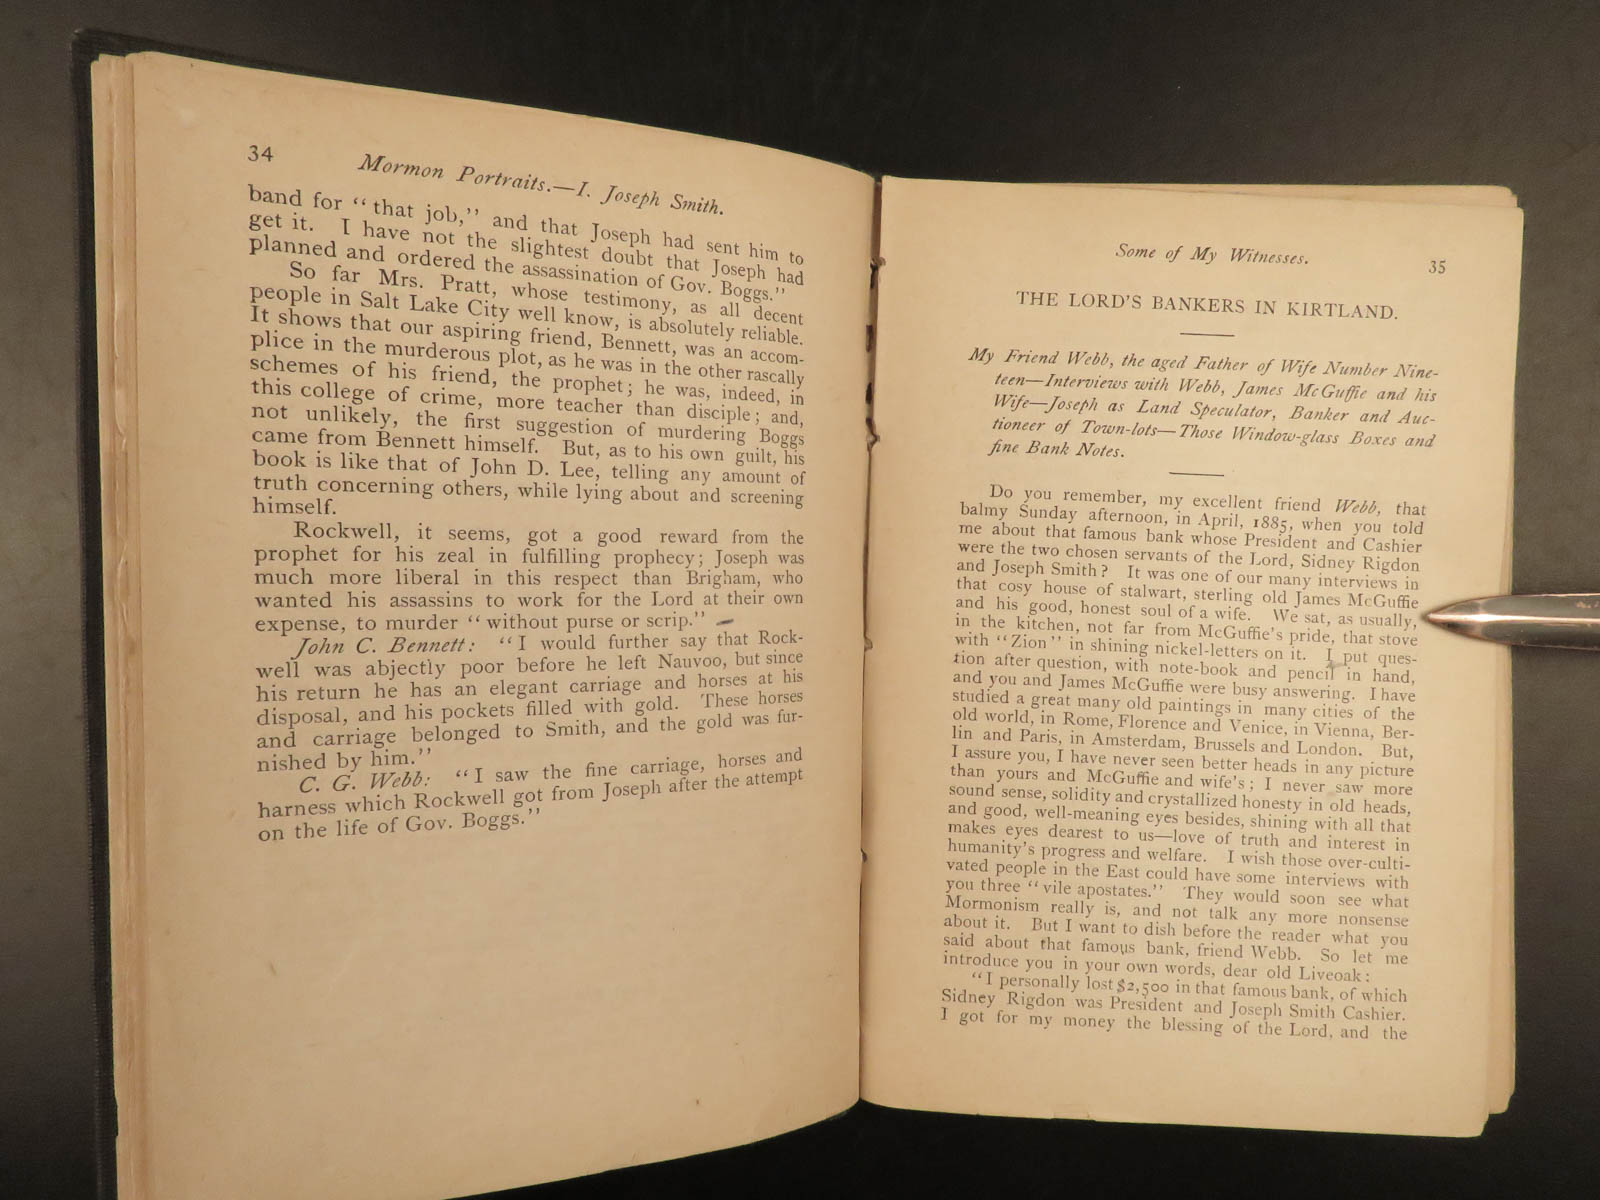 34
Mormon Portraits.—I. Joseph Smith.
band for "that job," and that Joseph had sent him to
get it. I have not the slightest doubt that Joseph had
planned and ordered the assassination of Gov. Boggs."
So far Mrs. Pratt, whose testimony, as all decent
people in Salt Lake City well know, is absolutely reliable.
It shows that our aspiring friend, Bennett, was an accom-
plice in the murderous plot, as he was in the other rascally
schemes of his friend, the prophet; he was, indeed, in
this college of crime, more teacher than disciple; and,
not unlikely, the first suggestion of murdering Boggs
came from Bennett himself. But, as to his own guilt, his
book is like that of John D. Lee, telling any amount of
truth concerning others, while lying about and screening
himself.
Rockwell, it seems, got a good reward from the
prophet for his zeal in fulfilling prophecy; Joseph was
much more liberal in this respect than Brigham, who
wanted his assassins to work for the Lord at their own
expense, to murder "without purse or scrip."
John C. Bennett: "I would further say that Rock-
well was abjectly poor before he left Nauvoo, but since
his return he has an elegant carriage and horses at his
disposal, and his pockets filled with gold. These horses
and carriage belonged to Smith, and the gold was fur-
nished by him."
C. G. Webb: "I saw the fine carriage, horses and
harness which Rockwell got from Joseph after the attempt
on the life of Gov. Boggs."
Some of My Witnesses.
35
THE LORD'S BANKERS IN KIRTLAND.
My Friend Webb, the aged Father of Wife Number Nine-
teen—Interviews with Webb, James McGuffie and his
Wife—Joseph as Land Speculator, Banker and Auc-
tioneer of Town-lots—Those Window-glass Boxes and
fine Bank Notes.
Do you remember, my excellent friend Webb, that
balmy Sunday afternoon, in April, 1885, when you told
me about that famous bank whose President and Cashier
were the two chosen servants of the Lord, Sidney Rigdon
and Joseph Smith? It was one of our many interviews in
that cosy house of stalwart, sterling old James McGuffie
and his good, honest soul of a wife. We sat, as usually,
in the kitchen, not far from McGuffie's pride, that stove
with "Zion" in shining nickel-letters on it. I put ques-
tion after question, with note-book and pencil in hand,
and you and James McGuffie were busy answering. I have
studied a great many old paintings in many cities of the
old world, in Rome, Florence and Venice, in Vienna, Ber-
lin and Paris, in Amsterdam, Brussels and London. But,
I assure you, I have never seen better heads in any picture
than yours and McGuffie and wife's; I never saw more
sound sense, solidity and crystallized honesty in old heads,
and good, well-meaning eyes besides, shining with all that
makes eyes dearest to us—love of truth and interest in
humanity's progress and welfare. I wish those over-culti-
vated people in the East could have some interviews with
you three "vile apostates." They would soon see what
Mormonism really is, and not talk any more nonsense
about it. But I want to dish before the reader what you
said about that famous bank, friend Webb. So let me
introduce you in your own words, dear old Liveoak:
"I personally lost $2,500 in that famous bank, of which
Sidney Rigdon was President and Joseph Smith Cashier.
I got for my money the blessing of the Lord, and the